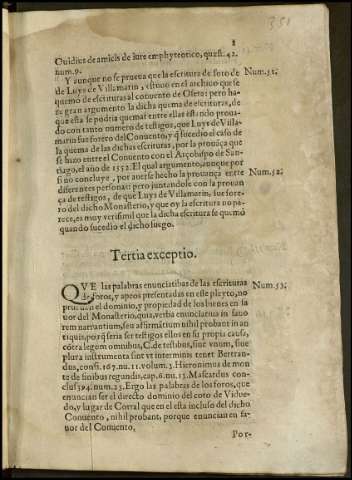 351
1
Guidius de amicis de iure emphyteotico, quæst. 42.
num. 9.
Y aunque no se prueua que la escritura de foro de Num. 51:
de Luys de Villamarin, estuuo en el archiuo que se
quemò de escrituras al conuento de Osera: pero ha-
ze gran argumento la dicha quema de escrituras, de
que esta se podria quemar entre ellas estando proua-
do con tanto numero de testigos, que Luys de Villa-
marin fue forero del Conuento, y q̃ sucedio el caso de
la quema de las dichas escrituras, por la prouãça que
se hizo entre el Conuento con el Arçobispo de San-
tiago, el año de 1552. El qual argumento, aunque por
si no concluye, por auerse hecho la prouança entre Num. 52:
diferentes personas: pero juntandole con la prouan
ça de testigos, de que Luys de Villamarin, fue fore-
ro del dicho Monasterio, y que oy la escritura no pa-
rece, es muy verisimil que la dicha escritura se quemó
quando sucedio el dicho fuego.
Tertia exceptio.
QVE las palabras enunciatibas de las escrituras Num. 53:
de foros, y apeos presentadas en este pleyto, no
prueuan el dominio, y propiedad de los bienes en fa
uor del Monasterio, quia, verbia enunciatiua in fauo
rem narrantium, seu afirmãtium nihil probant in an
tiquis, porq̃ seria ser testigos ellos en su propia causa,
cõtra legem omnibus, C. de testibus, siue vnum, siue
plura instrumenta sint vt interminis tenet Bertran-
dus, consi. 167. nu. 11. volum. 3. Hieronimus de mon
te de finibus regundis, cap. 6. nu. 15. Mascardus con-
clus 394. num. 23. Ergo las palabras de los foros, que
enuncian ser el directo dominio del coto de Vidue-
do, y lugar de Corral que en el esta incluso del dicho
Conuento, nihil probant, porque enuncian en fa-
uor del Conuento,
Por-